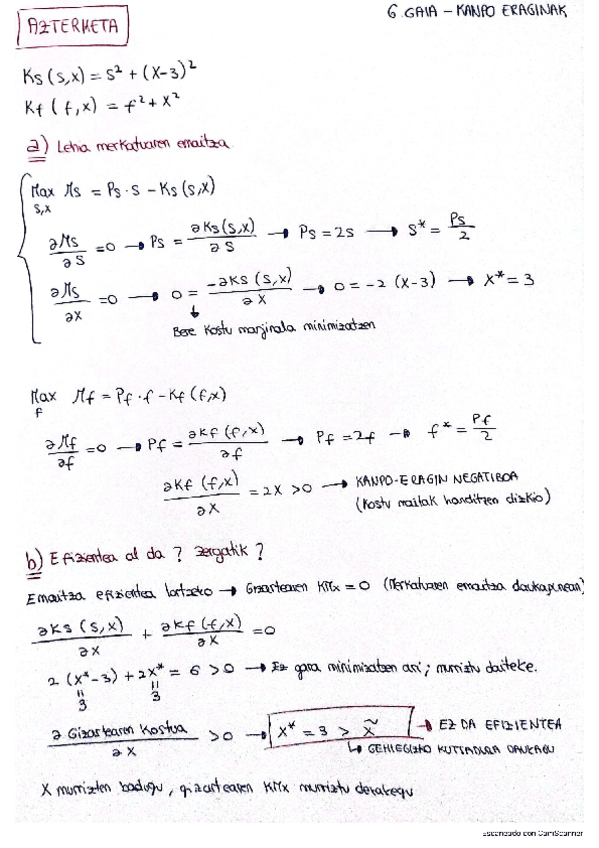 AZTERKETA
6. GAIA - KANPO ERAGINAK
Ks (s,x) = s² + (x-3)²
Kf (f,x) = f² + x²
a) Lehia merkatuaren emaitza
Max Πs = Ps · s - Ks (s,x)
s,x
∂Πs/∂s = 0 → Ps = ∂Ks(s,x)/∂s → Ps = 2s → s* = Ps/2
∂Πs/∂x = 0 → 0 = -∂Ks (s,x)/∂x → 0 = -2 (x-3) → x* = 3
Bere kostu marjinala minimizatzen
Max Πf = Pf · f - Kf (f,x)
f
∂Πf/∂f = 0 → Pf = ∂Kf (f,x)/∂f → Pf = 2f → f* = Pf/2
∂Kf (f,x)/∂x = 2x > 0 → KANPO-ERAGIN NEGATIBOA
(kostu mailak handitzen dizkio)
b) Efizientea al da? zergatik?
Emaitza efizientea lortzeko → Gizartearen KMx = 0 (Merkatuaren emaitza daukagunean)
∂Ks (s,x)/∂x + ∂Kf (f,x)/∂x = 0
2 (x* - 3) + 2x* = 6 > 0 → Ez gara minimizatzen ari; murriztu daiteke.
= 3 = 3
∂ Gizartearen Kostua/∂x > 0 → x* = 3 > x̃ → EZ DA EFIZIENTEA
↳ GEHIEGIZKO KUTSADURA DAUKAGU
X murrizten badugu, gizartearen KMx murriztu dezakegu
Escaneado con CamScanner